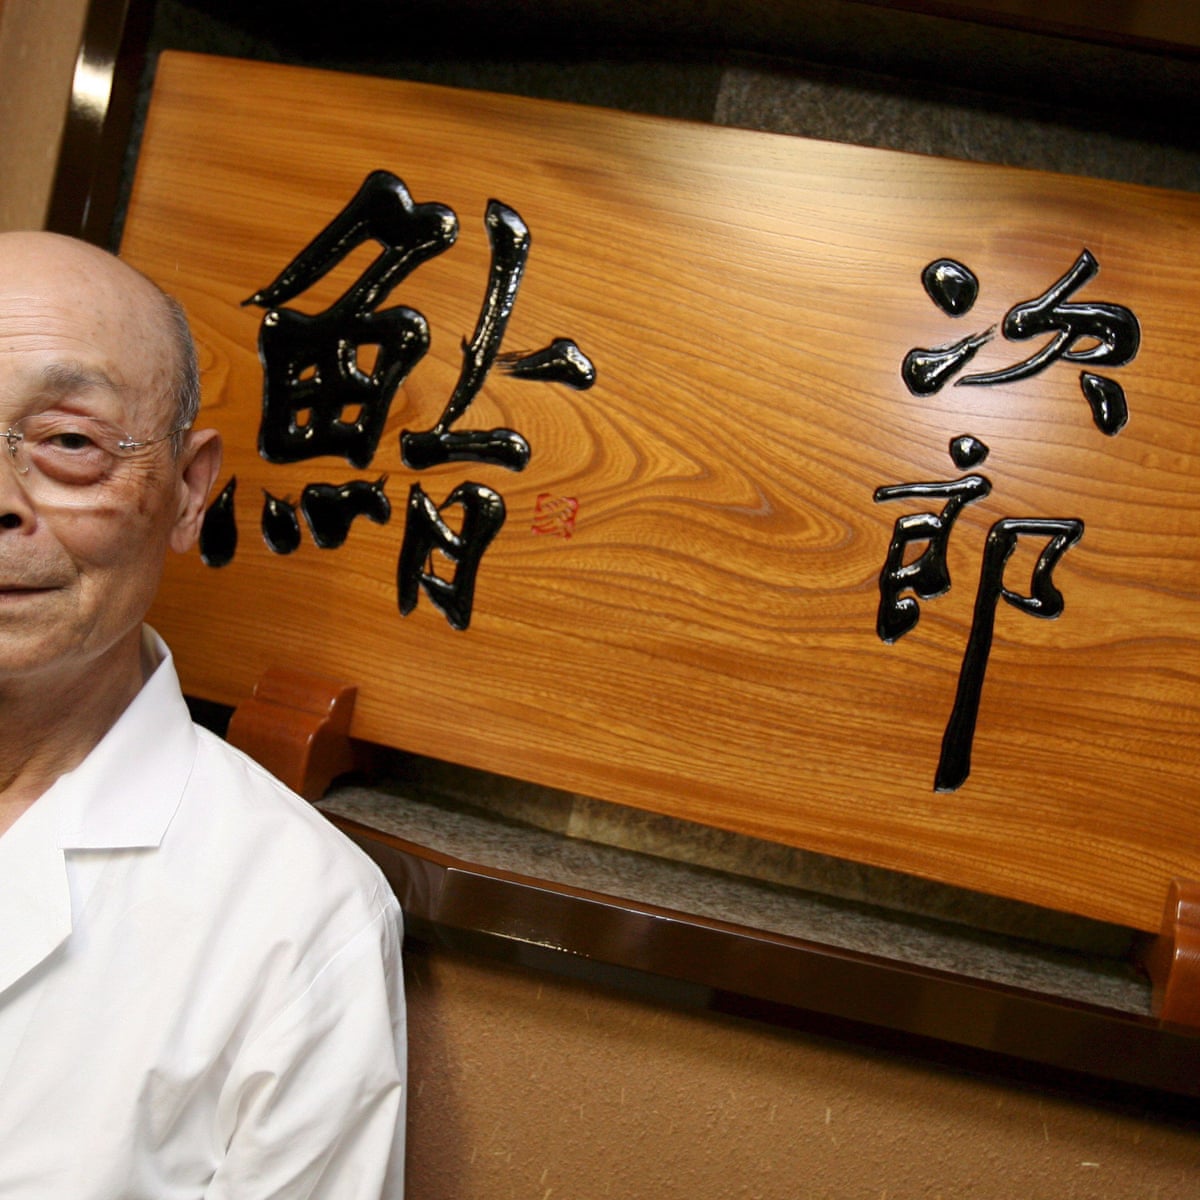 次郎
鮨